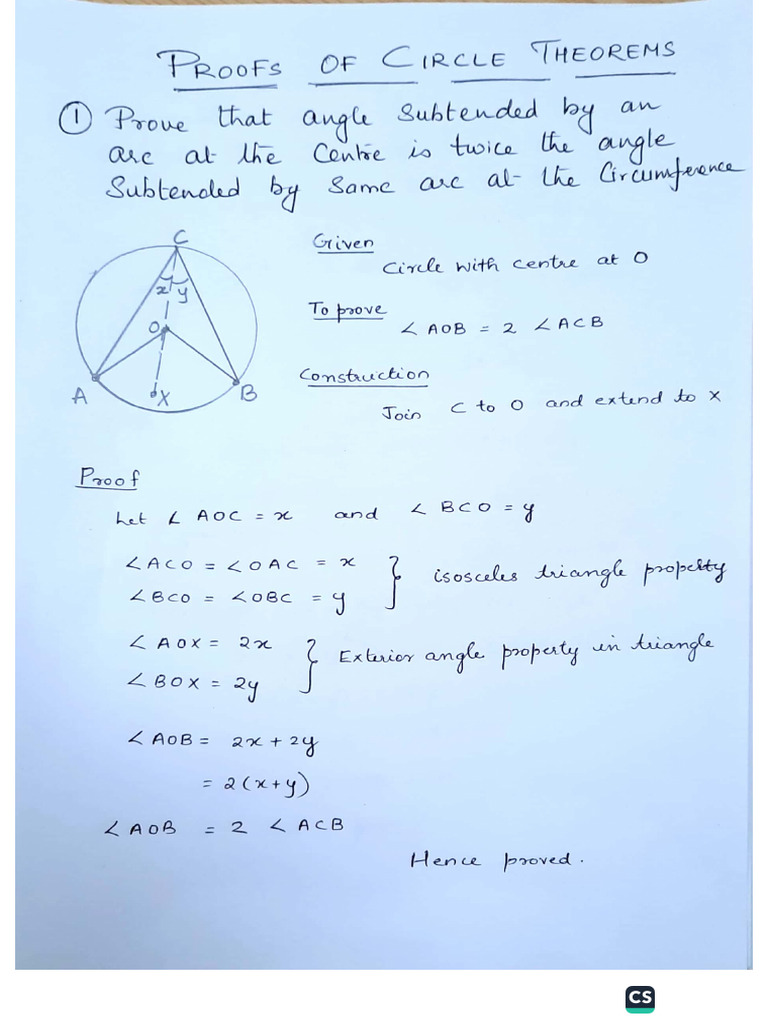 PROOFS OF CIRCLE THEOREMS
① Prove that angle subtended by an
arc at the centre is twice the angle
subtended by same arc at the circumference
C
x y
O
A
X
B
Given
Circle with centre at O
To prove
∠AOB = 2 ∠ACB
Construction
Join C to O and extend to X
Proof
Let ∠AOC = x and ∠BCO = y
∠ACO = ∠OAC = x } isosceles triangle property
∠BCO = ∠OBC = y
∠AOX = 2x } Exterior angle property in triangle
∠BOX = 2y
∠AOB = 2x + 2y
= 2(x+y)
∠AOB = 2 ∠ACB
Hence proved.
CS